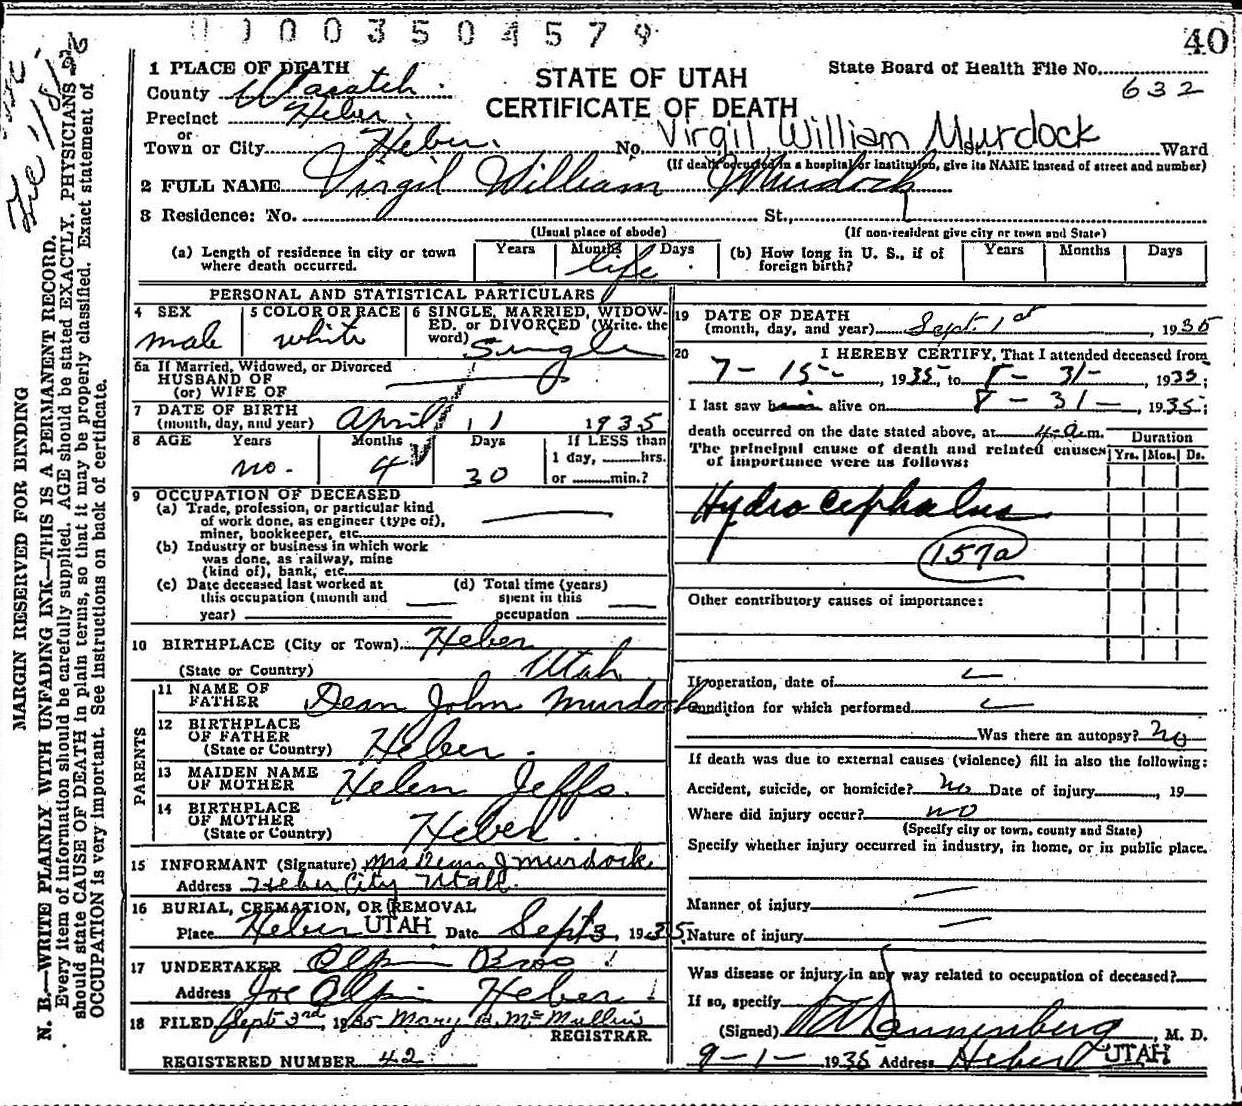 0003504579
40
1 PLACE OF DEATH
County Wasatch
Precinct Heber
or
Town or City Heber.
STATE OF UTAH
CERTIFICATE OF DEATH
State Board of Health File No.
632
Virgil William Murdock
No. St., Ward
(If death occurred in a hospital or institution, give its NAME instead of street and number)
2 FULL NAME Virgil William Murdock
3 Residence: No. St.,
(Usual place of abode) (If non-resident give city or town and State)
(a) Length of residence in city or town where death occurred. Years Months Days life
(b) How long in U. S., if of foreign birth? Years Months Days
PERSONAL AND STATISTICAL PARTICULARS
4 SEX male
5 COLOR OR RACE white
6 SINGLE, MARRIED, WIDOWED, or DIVORCED (Write the word) Single
6a If Married, Widowed, or Divorced
HUSBAND OF
(or) WIFE OF
7 DATE OF BIRTH
(month, day, and year) April 11 1935
8 AGE Years Months Days If LESS than
no. 4 30 1 day, hrs.
or min.?
9 OCCUPATION OF DECEASED
(a) Trade, profession, or particular kind
of work done, as engineer (type of),
miner, bookkeeper, etc.
(b) Industry or business in which work
was done, as railway, mine
(kind of), bank, etc.
(c) Date deceased last worked at
this occupation (month and
year)
(d) Total time (years)
spent in this
occupation
10 BIRTHPLACE (City or Town) Heber
(State or Country) Utah
PARENTS
11 NAME OF
FATHER Dean John Murdock
12 BIRTHPLACE
OF FATHER
(State or Country) Heber.
13 MAIDEN NAME
OF MOTHER Helen Jeffs.
14 BIRTHPLACE
OF MOTHER
(State or Country) Heber.
15 INFORMANT (Signature) Mrs Dean J Murdock.
Address Heber City Utah.
16 BURIAL, CREMATION, OR REMOVAL
Place Heber UTAH Date Sept 3, 1935
17 UNDERTAKER Olpin Bros
Address Joe Olpin Heber
18 FILED Sept 3rd, 1935 Mary B. McMullin
REGISTRAR.
REGISTERED NUMBER 42
19 DATE OF DEATH
(month, day, and year) Sept. 1st, 1935
20 I HEREBY CERTIFY, That I attended deceased from
7-15-, 1935, to 8-31-, 1935;
I last saw him alive on 8-31-, 1935;
death occurred on the date stated above, at 4 a.m.
The principal cause of death and related causes
of importance were as follows:
Duration
Yrs. Mos. Ds.
Hydrocephalus
157a
Other contributory causes of importance:
If operation, date of
Condition for which performed
Was there an autopsy? no
If death was due to external causes (violence) fill in also the following:
Accident, suicide, or homicide? no Date of injury, 19
Where did injury occur? no
(Specify city or town, county and State)
Specify whether injury occurred in industry, in home, or in public place.
Manner of injury
Nature of injury
Was disease or injury in any way related to occupation of deceased?
If so, specify
(Signed) Dannenberg, M. D.
9-1-1935 Address Heber UTAH
MARGIN RESERVED FOR BINDING
N. B.—WRITE PLAINLY WITH UNFADING INK—THIS IS A PERMANENT RECORD.
Every item of information should be carefully supplied. AGE should be stated EXACTLY. PHYSICIANS
should state CAUSE OF DEATH in plain terms, so that it may be properly classified. Exact statement of
OCCUPATION is very important. See instructions on back of certificate.